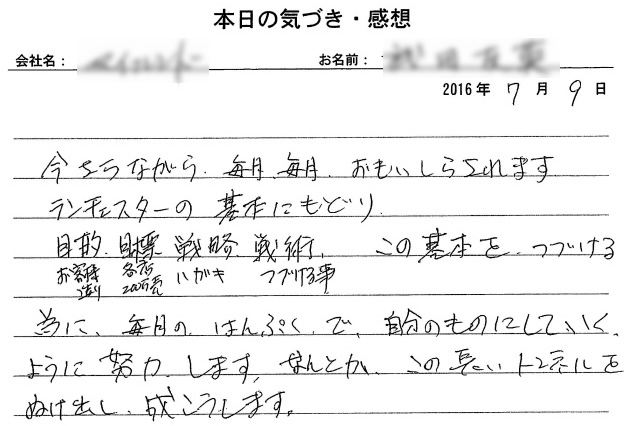 本日の気づき・感想
会社名： お名前：
2016年 7月 9日
今さらながら、毎月毎月、おもいしらされます
ランチェスターの基本にもどり、
目的、目標、戦略、戦術、この基本を、つづける
お客様造り 各店200万売 ハガキ つづける事
為に、毎月の、はんぷく、で、自分のものにしていく、
ように努力、します、なんとか、この長いトンネルを
ぬけ出し、成こうします。